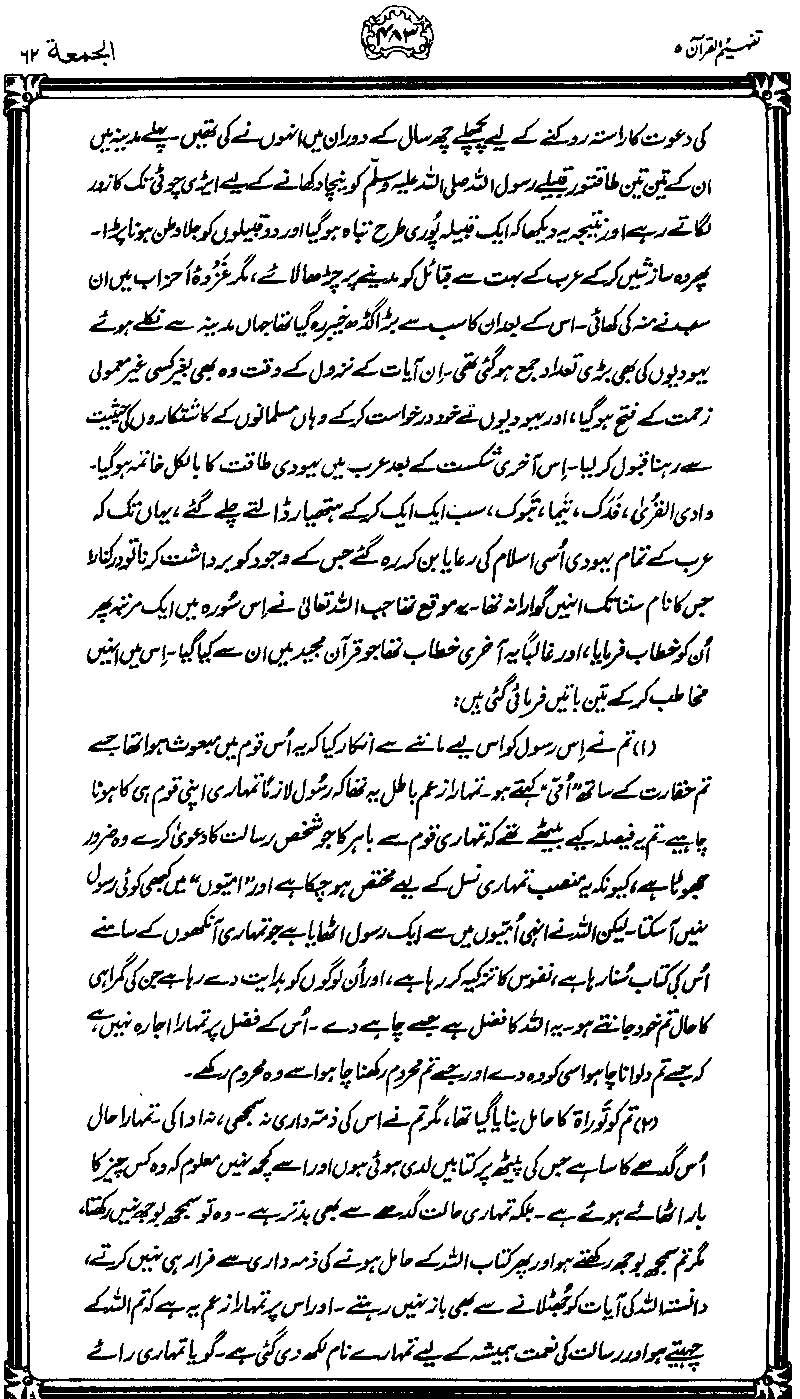 تفہیم القرآن ۵
۴۸۳
الجمعة ۶۲
کی دعوت کا راستہ روکنے کے لیے پچھلے چھ سال کے دوران میں انہوں نے کی تھیں۔ پہلے مدینہ میں
ان کے تین تین طاقتور قبیلے رسول اللہ صلی اللہ علیہ وسلّم کو نیچا دکھانے کے لیے ایڑی چوٹی تک کا زور
لگاتے رہے اور نتیجہ یہ دیکھا کہ ایک قبیلہ پُوری طرح تباہ ہو گیا اور دو قبیلوں کو جلا وطن ہونا پڑا۔
پھر وہ سازشیں کر کے عرب کے بہت سے قبائل کو مدینے پر چڑھا لائے، مگر غَزْوۂ اَحزاب میں ان
سب نے منہ کی کھائی۔ اس کے بعد ان کا سب سے بڑا گڈھ خیبر رہ گیا تھا جہاں مدینہ سے نکلے ہوئے
یہودیوں کی بھی بڑی تعداد جمع ہو گئی تھی۔ اِن آیات کے نزول کے وقت وہ بھی بغیر کسی غیر معمولی
زحمت کے فتح ہو گیا، اور یہودیوں نے خود درخواست کر کے وہاں مسلمانوں کے کاشتکاروں کی حیثیت
سے رہنا قبول کر لیا۔ اِس آخری شکست کے بعد عرب میں یہودی طاقت کا بالکل خاتمہ ہو گیا۔
وادی القُریٰ، فَدَک، تیْما، تَبوک، سب ایک ایک کر کے ہتھیار ڈالتے چلے گئے، یہاں تک کہ
عرب کے تمام یہودی اُسی اسلام کی رعایا بن کر رہ گئے جس کے وجود کو برداشت کرنا تو درکنار
جس کا نام سننا تک انہیں گوارا نہ تھا۔ یہ موقع تھا جب اللہ تعالیٰ نے اِس سُورہ میں ایک مرتبہ پھر
اُن کو خطاب فرمایا، اور غالباً یہ آخری خطاب تھا جو قرآن مجید میں ان سے کیا گیا۔ اِس میں انہیں
مخاطب کر کے تین باتیں فرمائی گئی ہیں:
(۱) تم نے اِس رسول کو اس لیے ماننے سے انکار کیا کہ یہ اُس قوم میں مبعوث ہوا تھا جسے
تم حقارت کے ساتھ "اُمّی" کہتے ہو۔ تمہارا زعمِ باطل یہ تھا کہ رسُول لازماً تمہاری اپنی قوم ہی کا ہونا
چاہیے۔ تم یہ فیصلہ کیے بیٹھے تھے کہ تمہاری قوم سے باہر کا جو شخص رسالت کا دعویٰ کرے وہ ضرور
جھوٹا ہے، کیونکہ یہ منصب تمہاری نسل کے لیے مختص ہو چکا ہے اور "امّیوں" میں کبھی کوئی رسول
نہیں آ سکتا۔ لیکن اللہ نے انہی اُمّیوں میں سے ایک رسول اٹھایا ہے جو تمہاری آنکھوں کے سامنے
اُس کی کتاب سُنا رہا ہے، نفوس کا تزکیہ کر رہا ہے، اور اُن لوگوں کو ہدایت دے رہا ہے جن کی گمراہی
کا حال تم خود جانتے ہو۔ یہ اللہ کا فضل ہے جسے چاہے دے۔ اُس کے فضل پر تمہارا اجارہ نہیں ہے
کہ جسے تم دلوانا چاہو اسی کو وہ دے اور جسے تم محروم رکھنا چاہو اسے وہ محروم رکھے۔
(۲) تم کو تَوراۃ کا حامل بنایا گیا تھا، مگر تم نے اس کی ذمّہ داری نہ سمجھی، نہ ادا کی۔ تمہارا حال
اُس گدھے کا سا ہے جس کی پیٹھ پر کتابیں لدی ہوئی ہوں اور اسے کچھ نہیں معلوم کہ وہ کس چیز کا
بار اٹھائے ہوئے ہے۔ بلکہ تمہاری حالت گدھے سے بھی بدتر ہے۔ وہ تو سمجھ بُوجھ نہیں رکھتا،
مگر تم سمجھ بوجھ رکھتے ہو اور پھر کتاب اللہ کے حامل ہونے کی ذمہ داری سے فرار ہی نہیں کرتے،
دانستہ اللہ کی آیات کو جُھٹلانے سے بھی باز نہیں رہتے۔ اور اس پر تمہارا زعم یہ ہے کہ تم اللہ کے
چہیتے ہو اور رسالت کی نعمت ہمیشہ کے لیے تمہارے نام لکھ دی گئی ہے۔ گویا تمہاری رائے